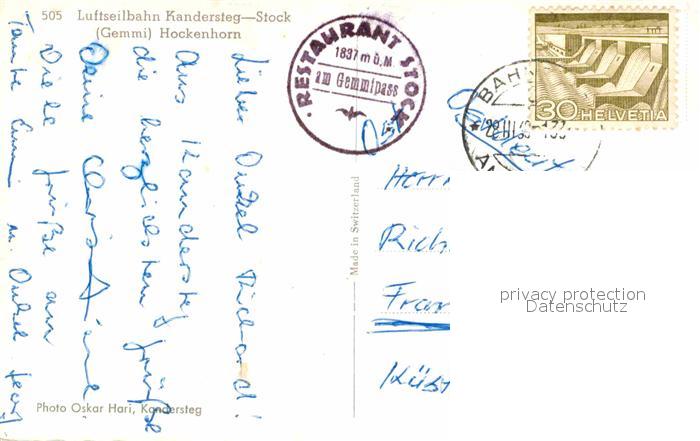 505 Luftseilbahn Kandersteg—Stock
(Gemmi) Hockenhorn
RESTAURANT STOCK
1837 m ü. M
am Gemmipass
HELVETIA
30
BAH
Lieber Onkel Richard!
Aus Kandersteg
die herzlichsten Grüße
Deine Christiane
Viele Grüße an
Tante Emmi u. Onkel
Made in Switzerland
Herrn
Rich
Fran
Küs
privacy protection
Datenschutz
Photo Oskar Hari, Kandersteg